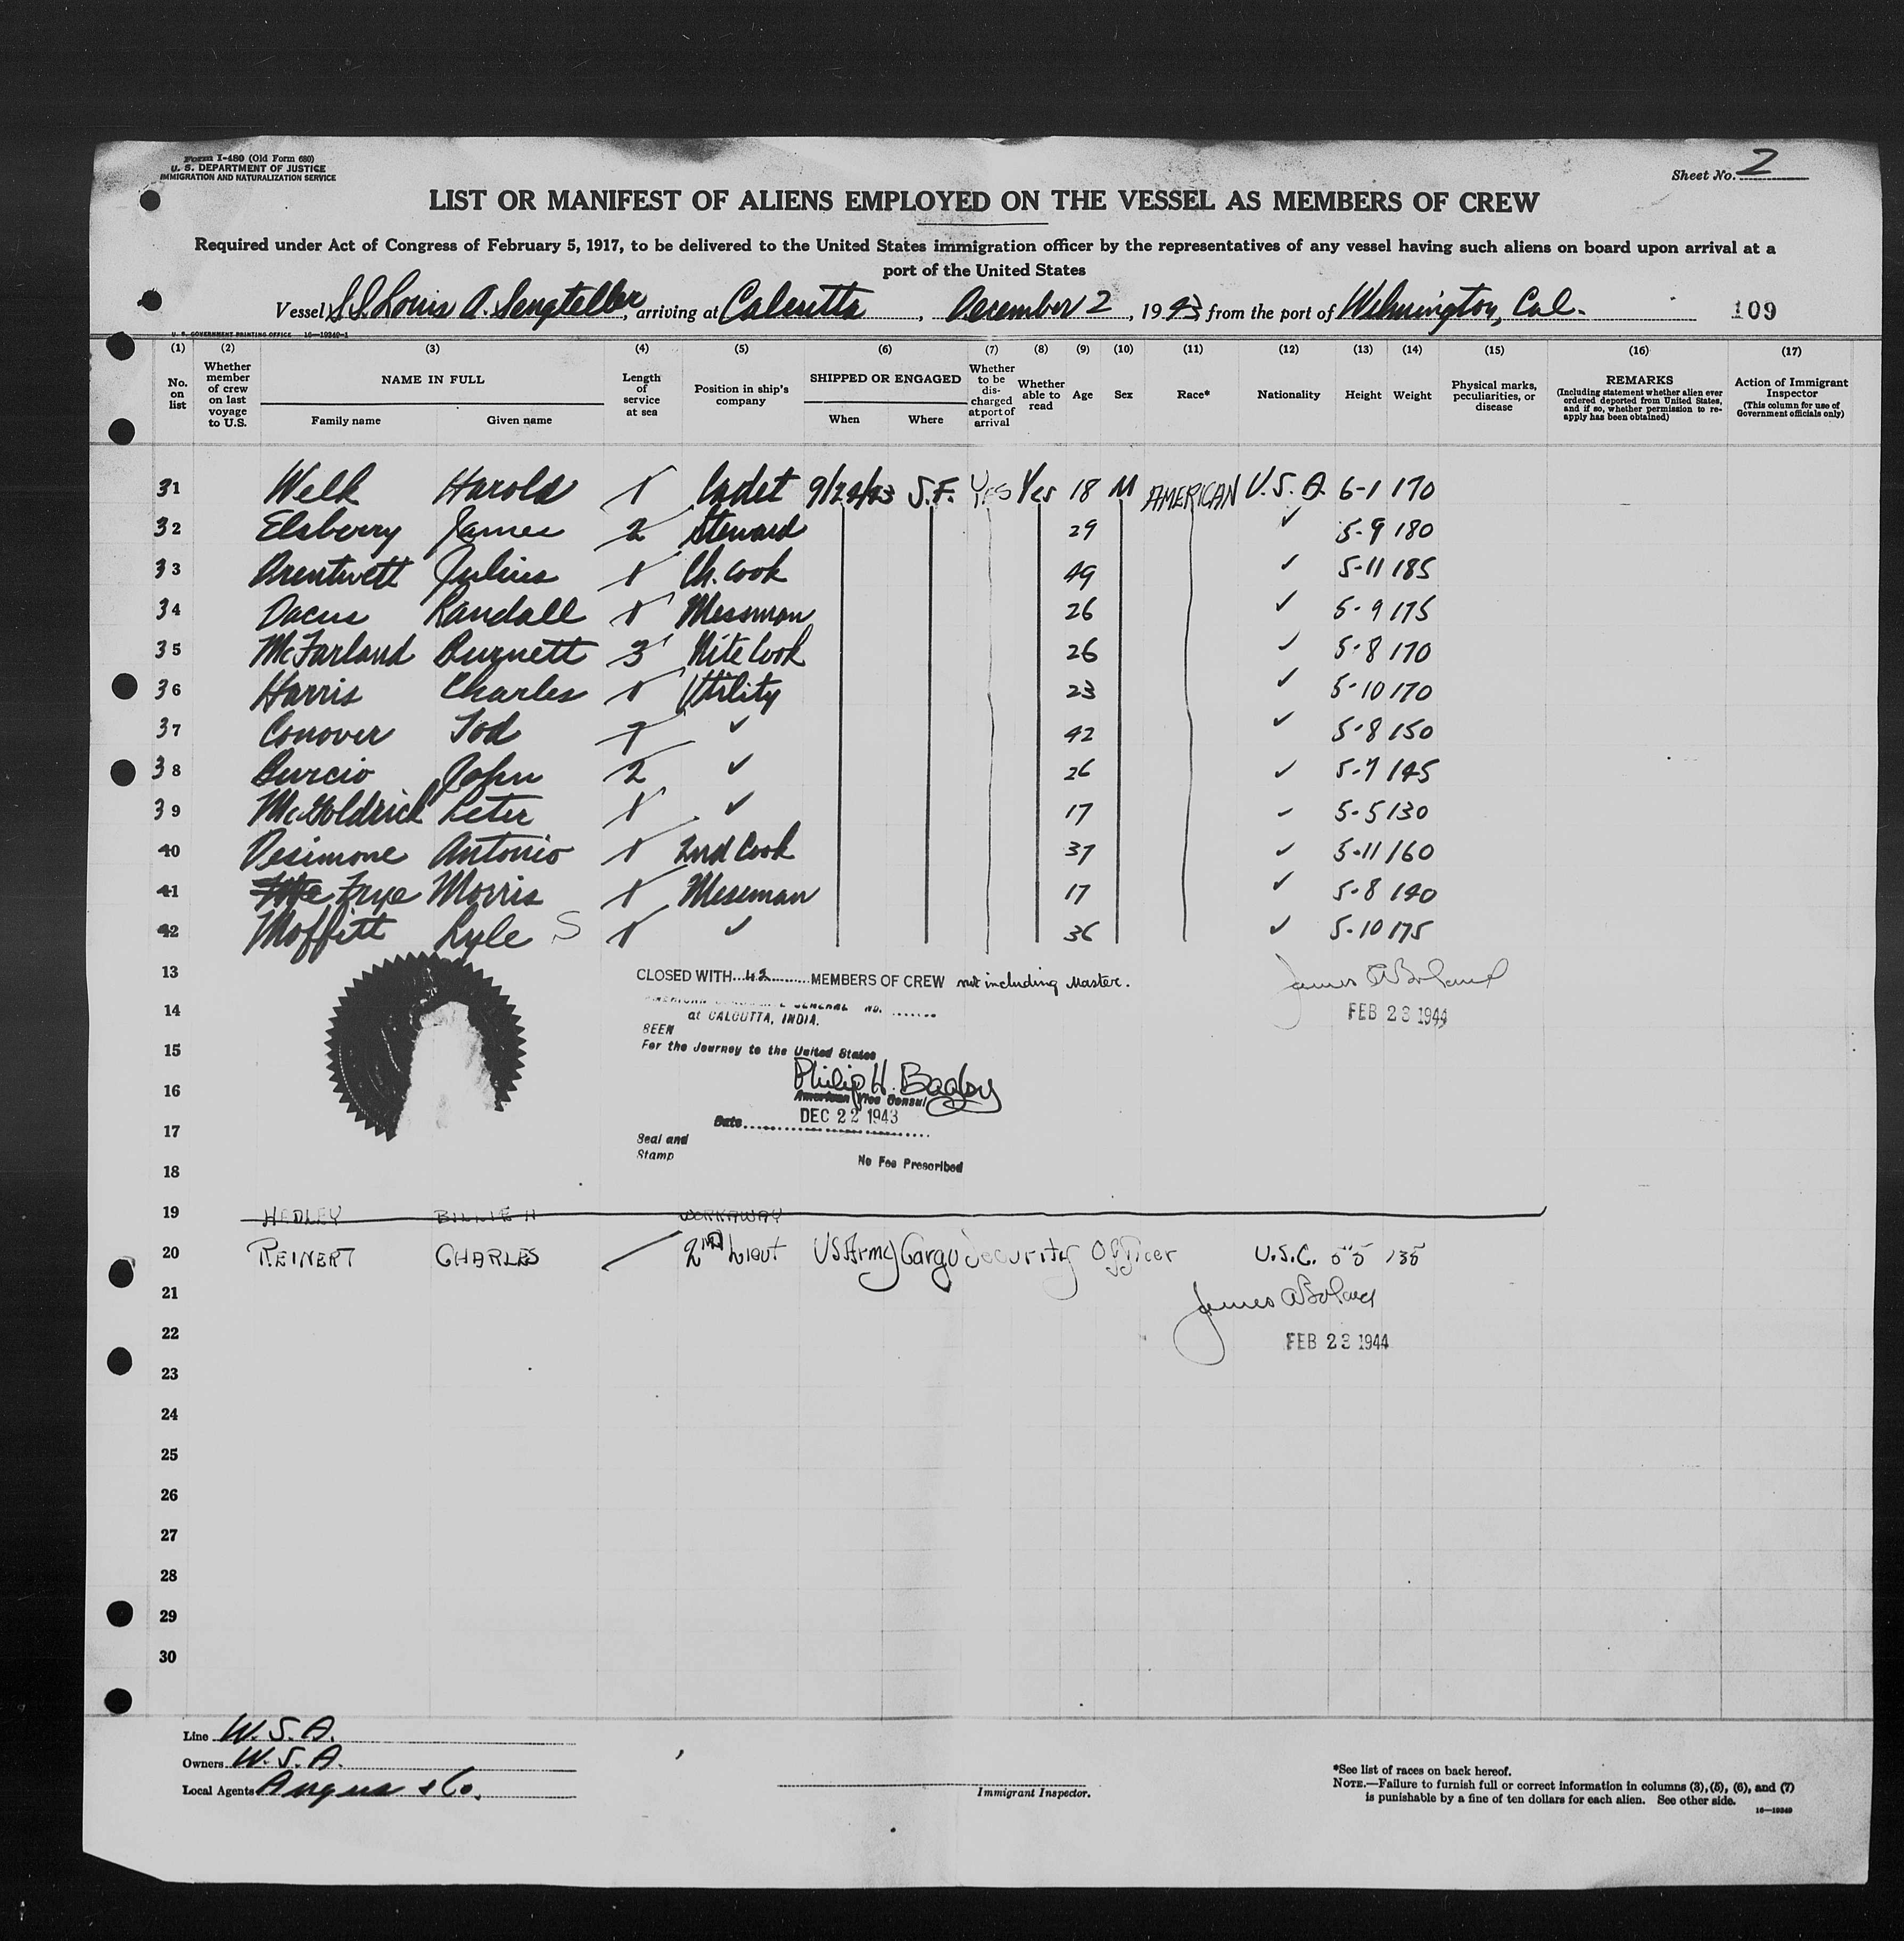 Form I-480 (Old Form 680)
U. S. DEPARTMENT OF JUSTICE
IMMIGRATION AND NATURALIZATION SERVICE
Sheet No. 2
LIST OR MANIFEST OF ALIENS EMPLOYED ON THE VESSEL AS MEMBERS OF CREW
Required under Act of Congress of February 5, 1917, to be delivered to the United States immigration officer by the representatives of any vessel having such aliens on board upon arrival at a
port of the United States
Vessel S.S. Louis A. Sengteller, arriving at Calcutta, December 2, 1943, from the port of Wilmington, Cal. 109
U. S. GOVERNMENT PRINTING OFFICE 16—19349-1
(1) (2) (3) (4) (5) (6) (7) (8) (9) (10) (11) (12) (13) (14) (15) (16) (17)
No. on list
Whether member of crew on last voyage to U.S.
NAME IN FULL
Family name Given name
Length of service at sea
Position in ship's company
SHIPPED OR ENGAGED
When Where
Whether to be discharged at port of arrival
Whether able to read
Age
Sex
Race*
Nationality
Height
Weight
Physical marks, peculiarities, or disease
REMARKS
(Including statement whether alien ever ordered deported from United States, and if so, whether permission to reapply has been obtained)
Action of Immigrant Inspector
(This column for use of Government officials only)
31 Welk Harold 1 Cadet 9/22/43 S.F. YES Yes 18 M AMERICAN U.S.A. 6-1 170
32 Elsberry James 2 Steward 29 ✓ 5-9 180
33 Brentwett Julius 1 Ch. Cook 49 ✓ 5-11 185
34 Dacus Randall 1 Messman 26 ✓ 5-9 175
35 McFarland Burnett 3 Nite Cook 26 ✓ 5-8 170
36 Harris Charles 1 Utility 23 ✓ 5-10 170
37 Conover Tod 7 ✓ 42 ✓ 5-8 150
38 Burcio John 2 ✓ 26 ✓ 5-7 145
39 McGoldrick Peter 1 ✓ 17 ✓ 5-5 130
40 Desimone Antonio 1 2nd Cook 37 ✓ 5-11 160
41 Frye Morris 1 Messman 17 ✓ 5-8 140
42 Moffitt Lyle S 1 ✓ 36 ✓ 5-10 175
13 CLOSED WITH 42 MEMBERS OF CREW not including Master. James A Boland
14 AMERICAN CONSULATE GENERAL NO. FEB 23 1944
at CALCUTTA, INDIA.
SEEN
15 For the Journey to the United States
16 Philip H. Bagby
American Vice Consul
17 Date DEC 22 1943
Seal and
Stamp
18 No Fee Prescribed
19 HEDLEY BILLIE H WORKAWAY
20 REINERT CHARLES 2ND Lieut US Army Cargo Security Officer U.S.C. 5'5 135
21 James A Boland
22 FEB 23 1944
23
24
25
26
27
28
29
30
Line W.S.A.
Owners W.S.A.
Local Agents Angus & Co.
Immigrant Inspector.
*See list of races on back hereof.
NOTE.—Failure to furnish full or correct information in columns (3), (5), (6), and (7)
is punishable by a fine of ten dollars for each alien. See other side.
16—19349